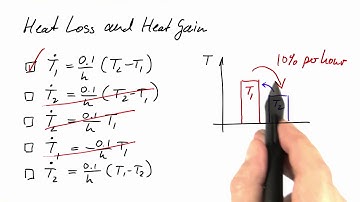 Heat Loss and Heat Gain
Ṫ₁ = 0.1/h (T₂-T₁)
Ṫ₂ = 0.1/h (T₂-T₁)
Ṫ₂ = 0.1/h T₁
Ṫ₁ = -0.1/h T₁
Ṫ₂ = 0.1/h (T₁-T₂)
T
10% per hour
T₁
T₂